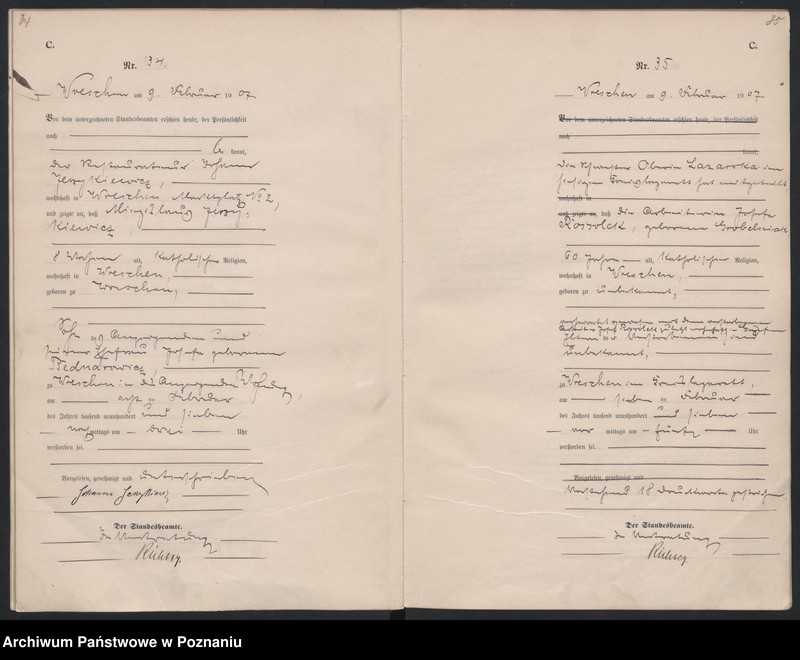 84
C.
Nr. 34.
Wreschen am 9. Februar 1907
Vor dem unterzeichneten Standesbeamten erschien heute, der Persönlichkeit
nach
kannt,
der Restaurateur Johann
Jerzykiewicz,
wohnhaft in Wreschen Marktplatz No 2,
und zeigte an, daß Jerzy-
kiewicz,
8 Wochen alt, katholischer Religion,
wohnhaft in Wreschen,
geboren zu Wreschen,
Sohn des Anzeigenden und
seiner Ehefrau Josefa geborenen
Bednarowicz,
zu Wreschen in des Anzeigenden Wohnung,
am acht ten Februar
des Jahres tausend neunhundert und sieben
nachmittags um drei Uhr
verstorben sei.
Vorgelesen, genehmigt und unterschrieben
Johann Jerzykiewicz
Der Standesbeamte.
In Vertretung
85
C.
Nr. 35
Wreschen am 9. Februar 1907
Vor dem unterzeichneten Standesbeamten erschien heute, der Persönlichkeit
nach
kannt,
Die Schwester Oberin Lazarska im
hiesigen hat mitgeteilt,
wohnhaft in
und zeigte an, daß die Arbeiterin Josefa
geborene Grobelniak
60 Jahre alt, katholischer Religion,
wohnhaft in Wreschen,
geboren zu unbekannt,
verheiratet gewesen mit dem verstorbenen
Arbeiter Josef
Eltern der Verstorbenen sind
unbekannt,
zu Wreschen im
am sieben ten Februar
des Jahres tausend neunhundert und sieben
vormittags um fünf Uhr
verstorben sei.
Vorgelesen, genehmigt und
Vorstehend 18 Druckworte gestrichen.
Der Standesbeamte.
In Vertretung
Archiwum Państwowe w Poznaniu